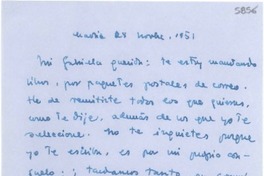 5856
Madrid 28 novbre. 1951
Mi Gabriela querida: te estoy mandando
libros, por paquetes postales de correo.
He de remitirte todos los que quieras,
como te dije, además de los que yo te
seleccione. No te inquietes porque
yo te escriba, es por mi propio con-
suelo. ; tardamos tanto en